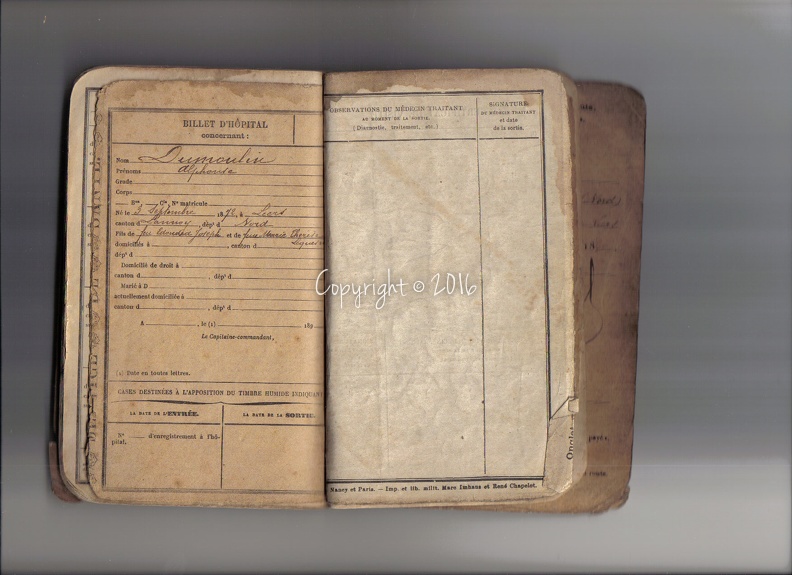 BILLET D'HÔPITAL
concernant :
Nom Dumoulin
Prénoms Alphonse
Grade
Corps
Bon, Cie, No matricule
Né le 3 Septembre 1872, à Leers
canton d Lannoy, dépt d Nord
Fils de feu Edouard Joseph et de feue Marie Thérèse
domiciliés à , canton d
dépt d
Domicilié de droit à
canton d , dépt d
Marié à D
actuellement domiciliée à
canton d , dépt d
A , le (1) 189
Le Capitaine-commandant,
(1) Date en toutes lettres.
CASES DESTINÉES À L'APPOSITION DU TIMBRE HUMIDE INDIQUANT
LA DATE DE L'ENTRÉE. LA DATE DE LA SORTIE.
No d'enregistrement à l'hô-
pital.
OBSERVATIONS DU MÉDECIN TRAITANT
AU MOMENT DE LA SORTIE.
(Diagnostic, traitement, etc.)
SIGNATURE
DU MÉDECIN TRAITANT
et date
de la sortie.
Nancy et Paris. — Imp. et lib. milit. Marc Imhaus et René Chapelot.
Onglet
Nord
Copyright © 2016